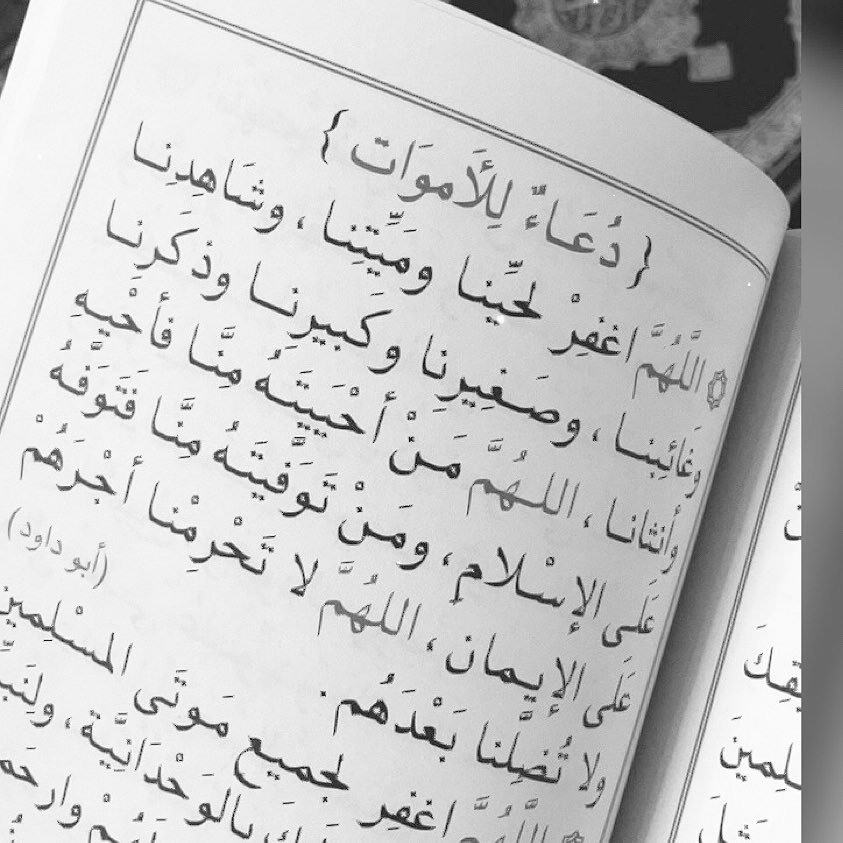 {دُعَاءٌ لِلأَموَات}
اللَّهُمَّ اغفِرْ لحيِّنا وميِّتِنا، وشَاهِدِنا
وغَائِبِنا، وصَغِيرِنا وكَبيرِنا وذكَرِنا
وأُنثانا، اللهُمَّ مَنْ أحْيَيتَهُ مِنَّا فأَحْيِهِ
عَلى الإسْلامِ، ومَنْ تَوَفَّيْتَهُ مِنَّا فَتَوَفَّهُ
عَلى الإيمان، اللهُمَّ لا تَحْرِمْنا أجْرَهُمْ
ولا تُضِلَّنا بَعْدَهُم. (أبو داود)
اللَّهُمَّ اغفِر لجميعِ مَوتَى المسْلِمين
بالوَحْدَانيَّة، ولِنَب
وارحَم
قِكَ
لِمينَ